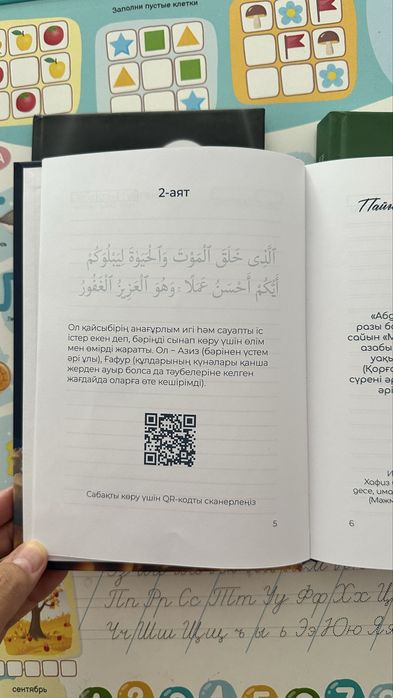 Заполни пустые клетки
2-аят
ٱلَّذِى خَلَقَ ٱلْمَوْتَ وَٱلْحَيَوٰةَ لِيَبْلُوَكُمْ
أَيُّكُمْ أَحْسَنُ عَمَلًا ۚ وَهُوَ ٱلْعَزِيزُ ٱلْغَفُورُ
Ол қайсыбірің анағұрлым игі һәм сауапты іс
істер екен деп, бәріңді сынап көру үшін өлім
мен өмірді жаратты. Ол – Азиз (бәрінен үстем
әрі ұлы), Ғафур (құлдарының күнәлары қанша
жерден ауыр болса да тәубелеріне келген
жағдайда оларға өте кешірімді).
Сабақты көру үшін QR-кодты сканерлеңіз
5
«Абд
разы б
сайын «М
азабы
уақы
(Қорғ
сүрені ә
әрі
И
Хафиз
десе, има
(Мажм
6
Пп Рр Сс Тт Уу Фф Хх Ц
Чч Шш Щщ ъ ы ь Ээ Юю Яя
сентябрь